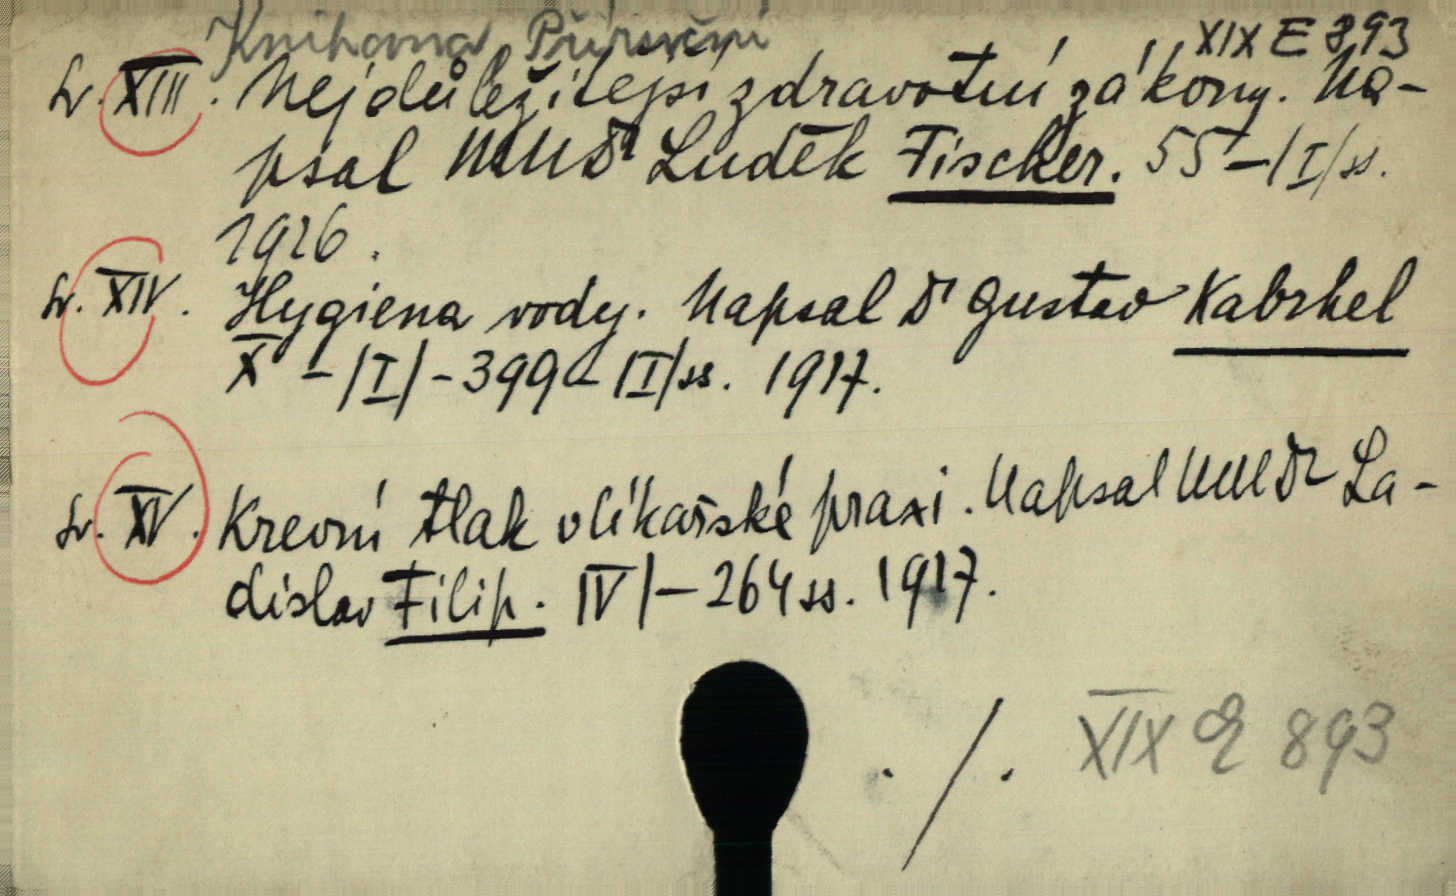 Knihovna Příruční XIX E 893
Sv. XIII. Nejdůležitejší zdravotní zákony. Na-
psal MUDr Luděk Fischer. 55-/I/ss.
1916.
Sv. XIV. Hygiena vody. Napsal Dr Gustav Kabrhel
X-/I/-399-/I/ss. 1917.
Sv. XV. Krevní tlak v líkařské praxi. Napsal MUDr La-
dislav Filip. IV/-264 ss. 1917.
./.
XIX E 893